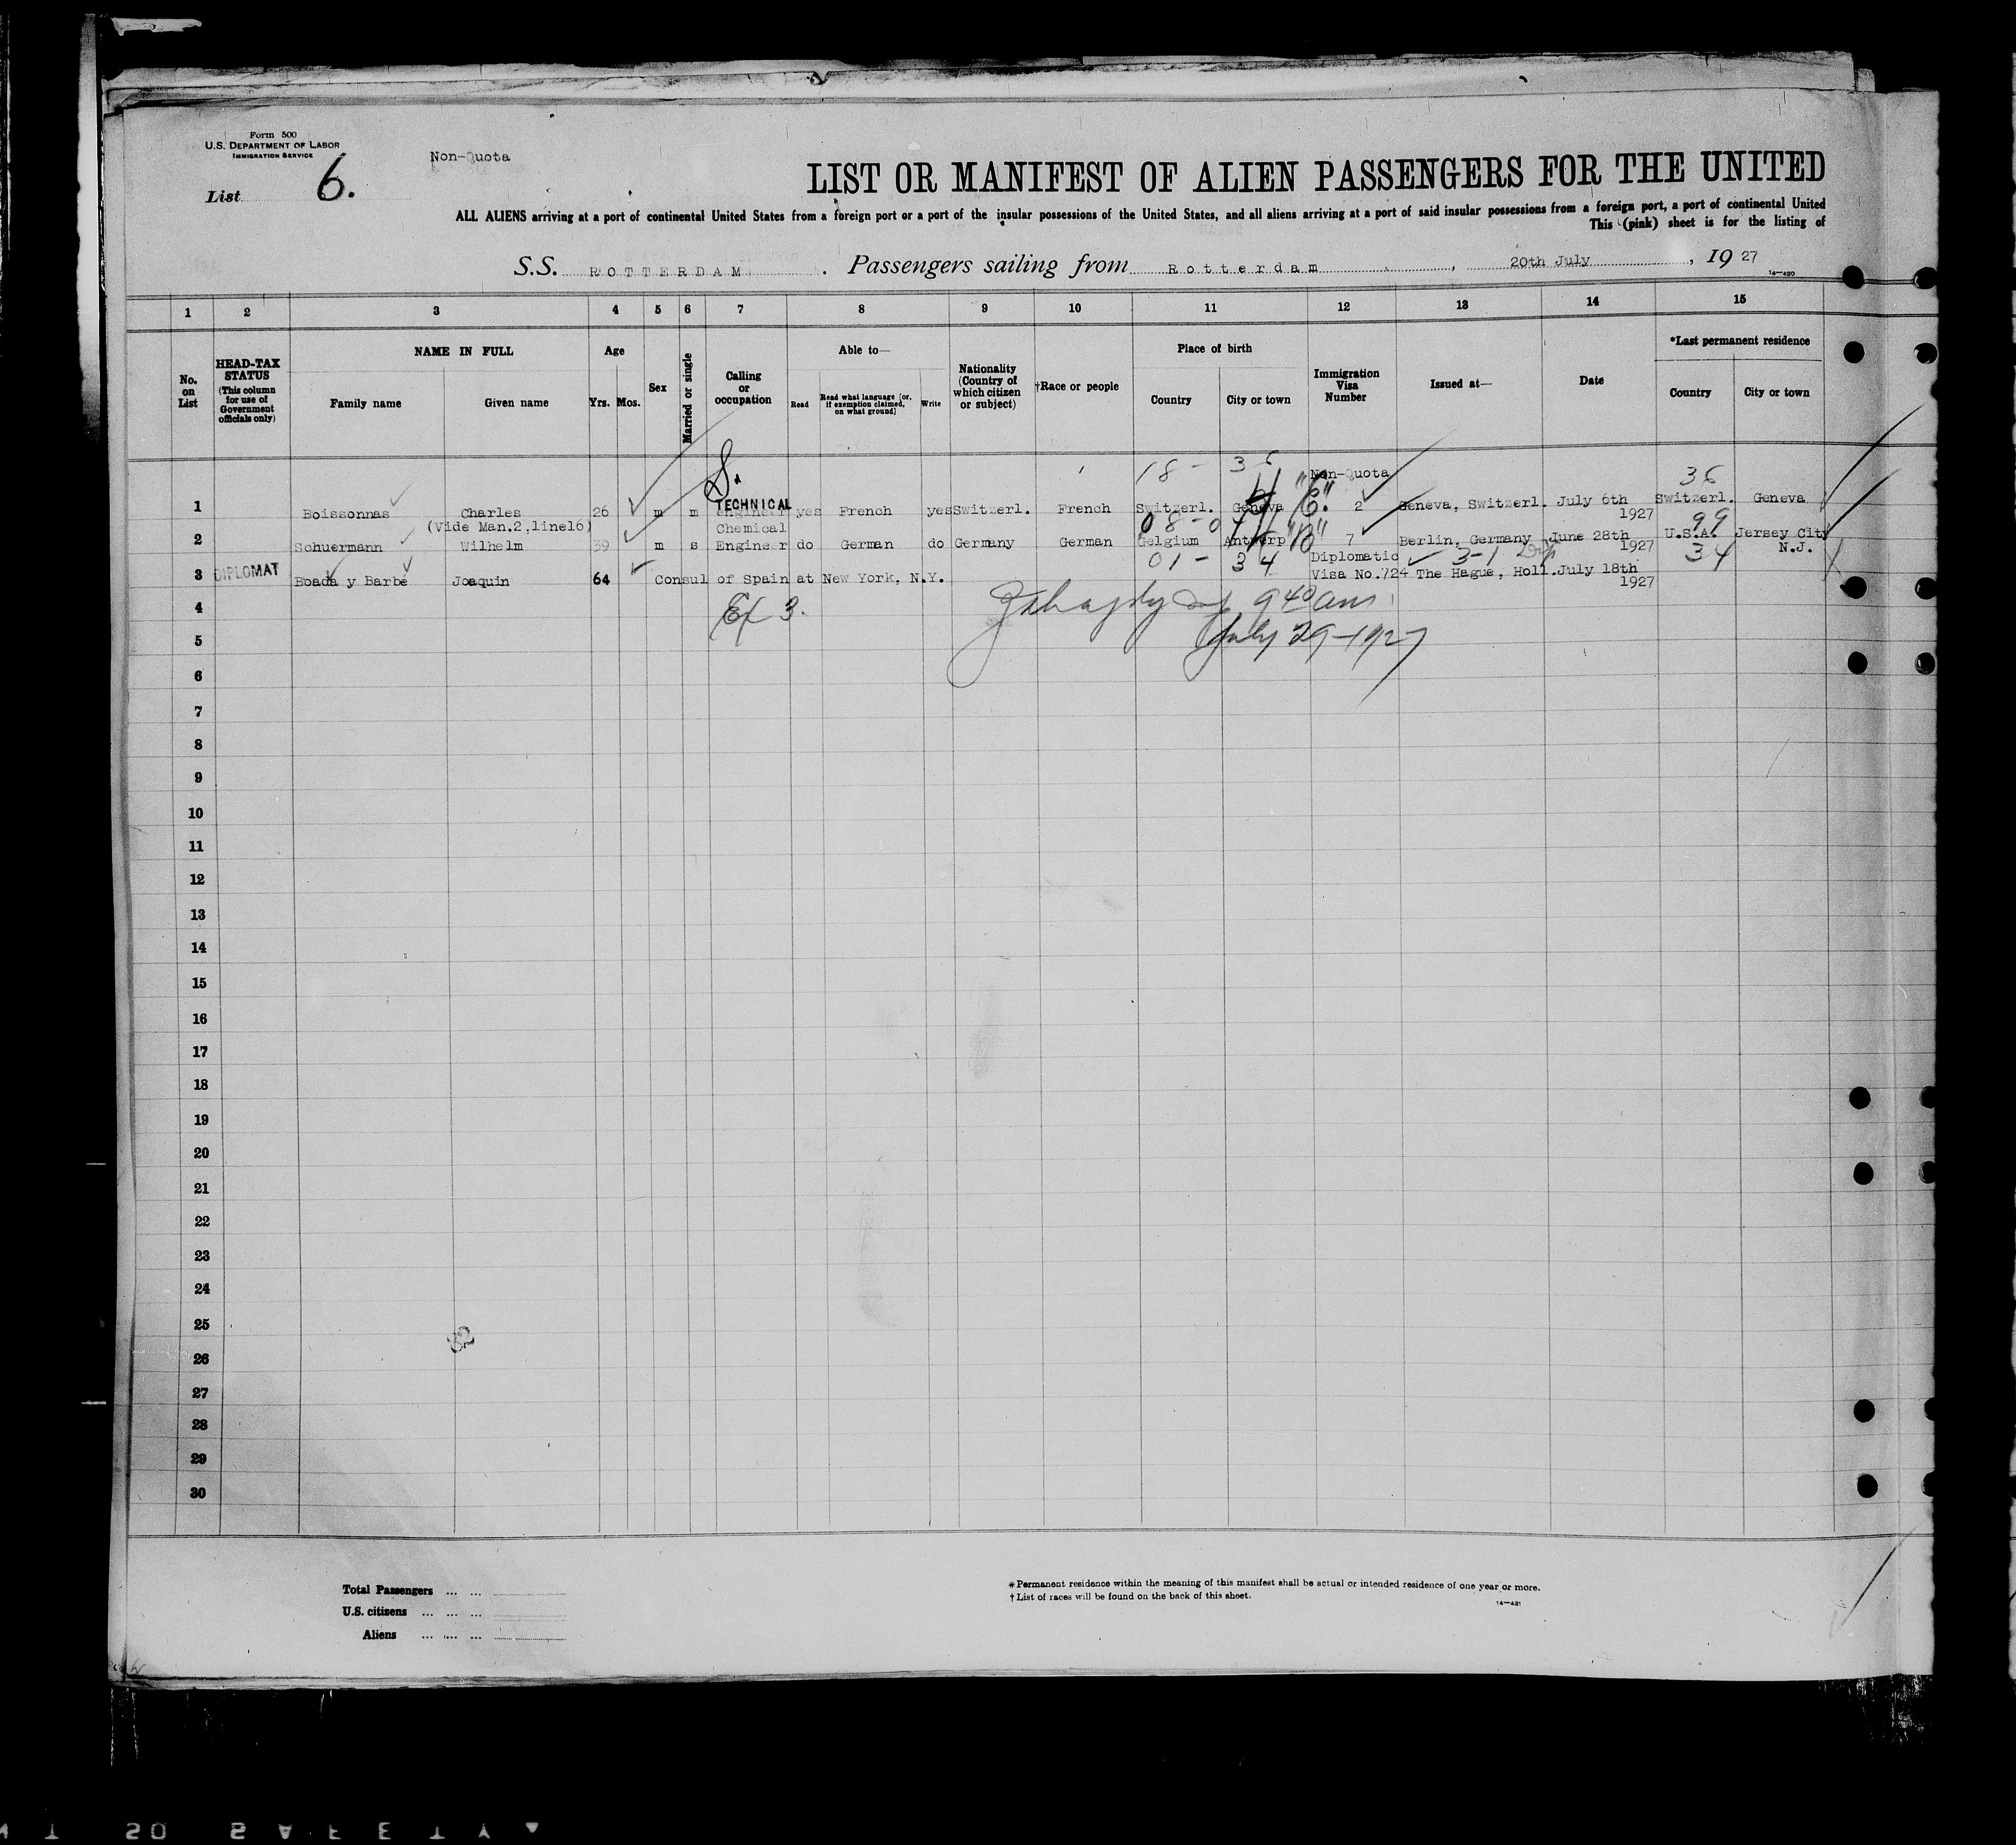 Form 500
U.S. DEPARTMENT OF LABOR
IMMIGRATION SERVICE
Non-Quota
List 6.
LIST OR MANIFEST OF ALIEN PASSENGERS FOR THE UNITED
ALL ALIENS arriving at a port of continental United States from a foreign port or a port of the insular possessions of the United States, and all aliens arriving at a port of said insular possessions from a foreign port, a port of continental United
This (pink) sheet is for the listing of
S.S. ROTTERDAM. Passengers sailing from Rotterdam, 20th July, 1927
14—430
1 2 3 4 5 6 7 8 9 10 11 12 13 14 15
No. on List
HEAD-TAX STATUS (This column for use of Government officials only)
NAME IN FULL
Family name Given name
Age
Yrs. Mos.
Sex
Married or single
Calling or occupation
Able to—
Read Read what language [or, if exemption claimed, on what ground] Write
Nationality (Country of which citizen or subject)
†Race or people
Place of birth
Country City or town
Immigration Visa Number
Issued at—
Date
*Last permanent residence
Country City or town
18 - 36 Non-Quota 36
TECHNICAL
1 Boissonnas Charles 26 m m engineer yes French yes Switzerl. French Switzerl. Geneva "6" 2 Geneva, Switzerl. July 6th 1927 Switzerl. Geneva
(Vide Man.2,line16) Chemical 08 - 04 "10" 99
2 Schuermann Wilhelm 39 m s Engineer do German do Germany German Gelgium Antwerp 7 Berlin, Germany June 28th 1927 U.S.A. Jersey City N.J.
01 - 34 Diplomatic 3-1 34
3 DIPLOMAT Boada y Barbé Joaquin 64 Consul of Spain at New York, N.Y. Visa No.724 The Hague, Holl. July 18th 1927
4 Ex 3. 9 40 am
5 July 29-1927
6
7
8
9
10
11
12
13
14
15
16
17
18
19
20
21
22
23
24
25
82
26
27
28
29
30
Total Passengers
U.S. citizens
Aliens
*Permanent residence within the meaning of this manifest shall be actual or intended residence of one year or more.
†List of races will be found on the back of this sheet.
14—431
SAFETY